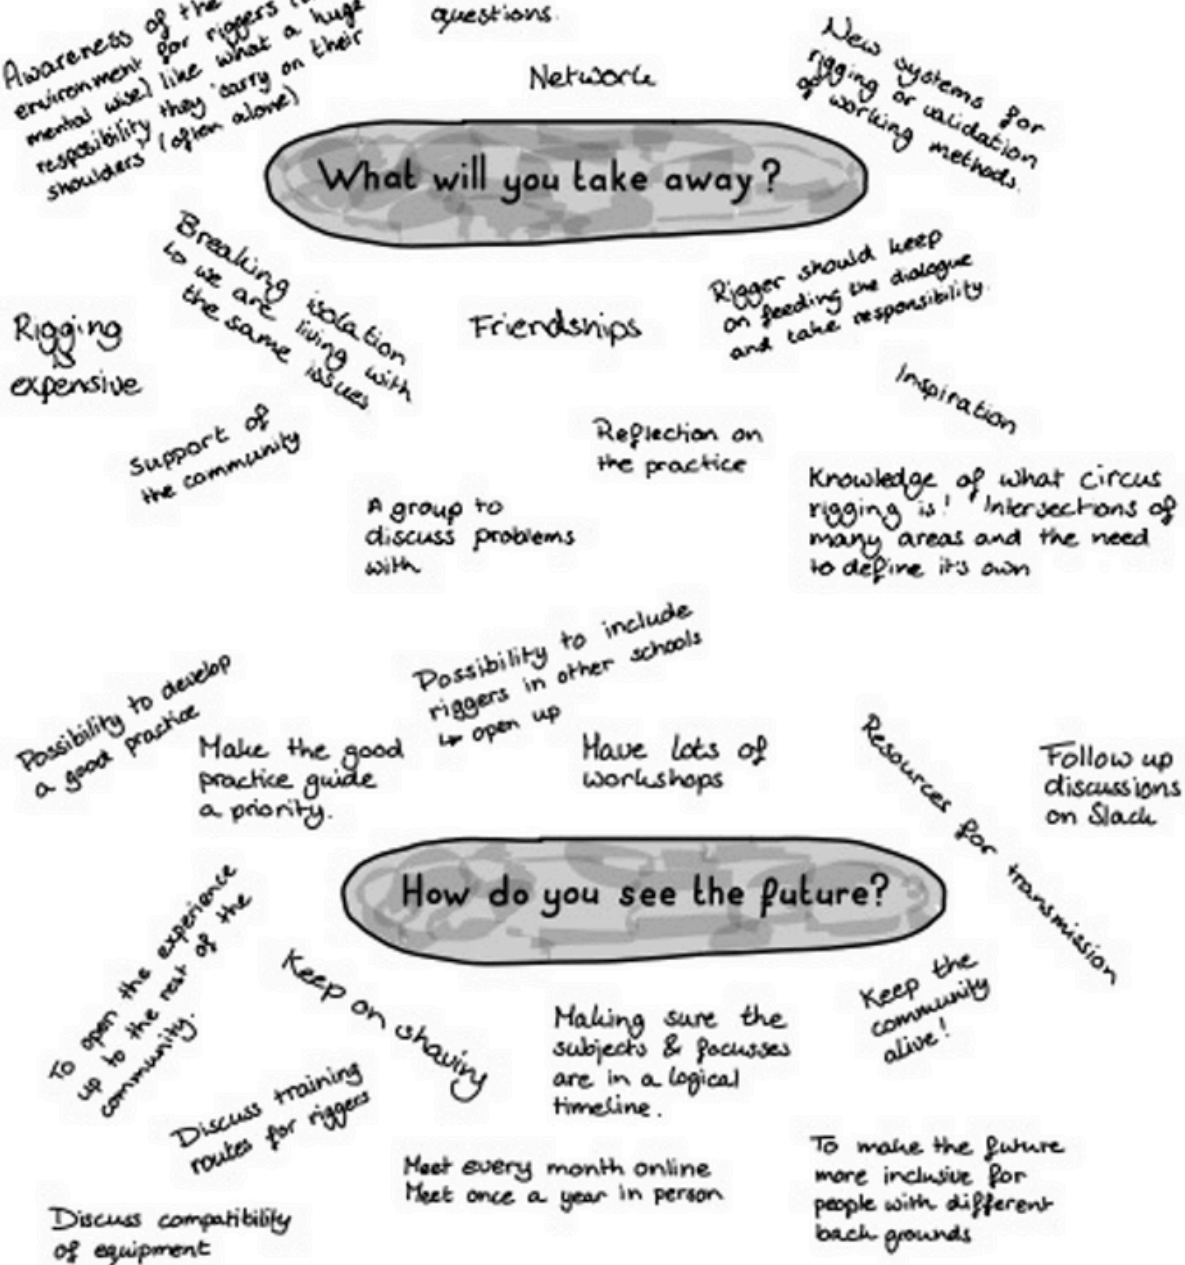 Awareness of the
environment for riggers
mental wise) like what a huge
resposibility they "carry on their
shoulders" (often alone)
questions.
Network
New systems for
rigging or validation
of working methods.
What will you take away?
Breaking isolation
↳ we are living with
the same issues
Rigger should keep
on feeding the dialogue
and take responsibility.
Rigging
is
expensive
Friendships
Inspiration
Support of
the community
Reflection on
the practice
A group to
discuss problems
with
Knowledge of what circus
rigging is! Intersections of
many areas and the need
to define it's own
Possibility to include
riggers in other schools
↳ open up
Possibility to develop
a good practice
Make the good
practice guide
a priority.
Have lots of
workshops
Resources for transmission
Follow up
discussions
on Slack
How do you see the future?
To open the experience
up to the rest of the
community.
Keep on sharing
Making sure the
subjects & focusses
are in a logical
timeline.
Keep the
community
alive!
Discuss training
routes for riggers
Meet every month online
Meet once a year in person
To make the future
more inclusive for
people with different
back grounds
Discuss compatibility
of equipment